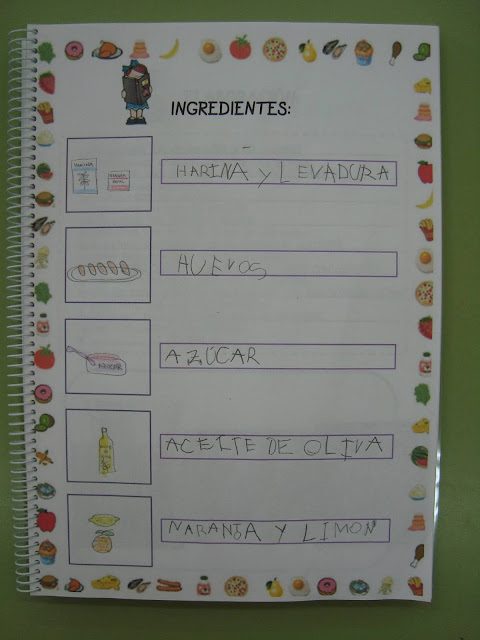 INGREDIENTES:
HARINA
HARINA Y LEVADURA
HUEVOS
AZUCAR
AZÚCAR
ACEITE DE OLIVA
NARANJA Y LIMON